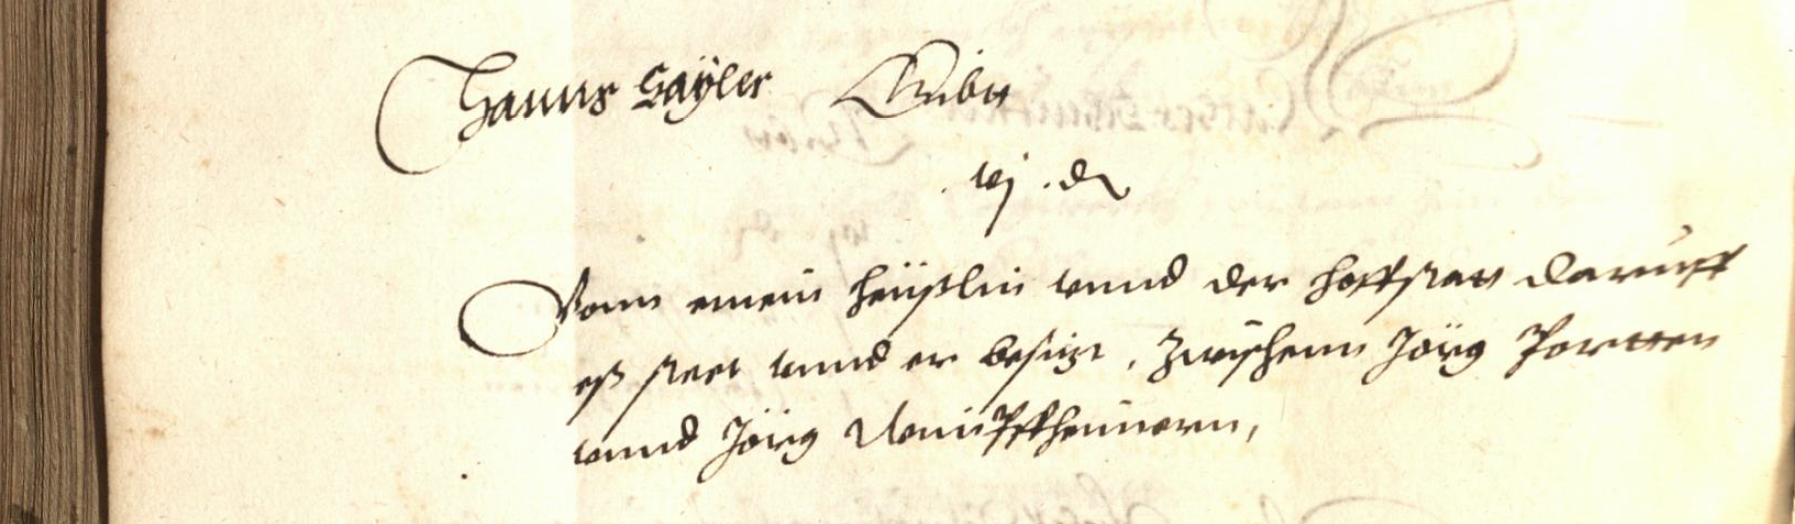 Hanns Sayler Gibtt
. vj . d
Vonn einem heüßlin vnnd der hoffstatt darauff
eß steet vnnd er besitzt, zwischenn Jörg
vnnd Jörg